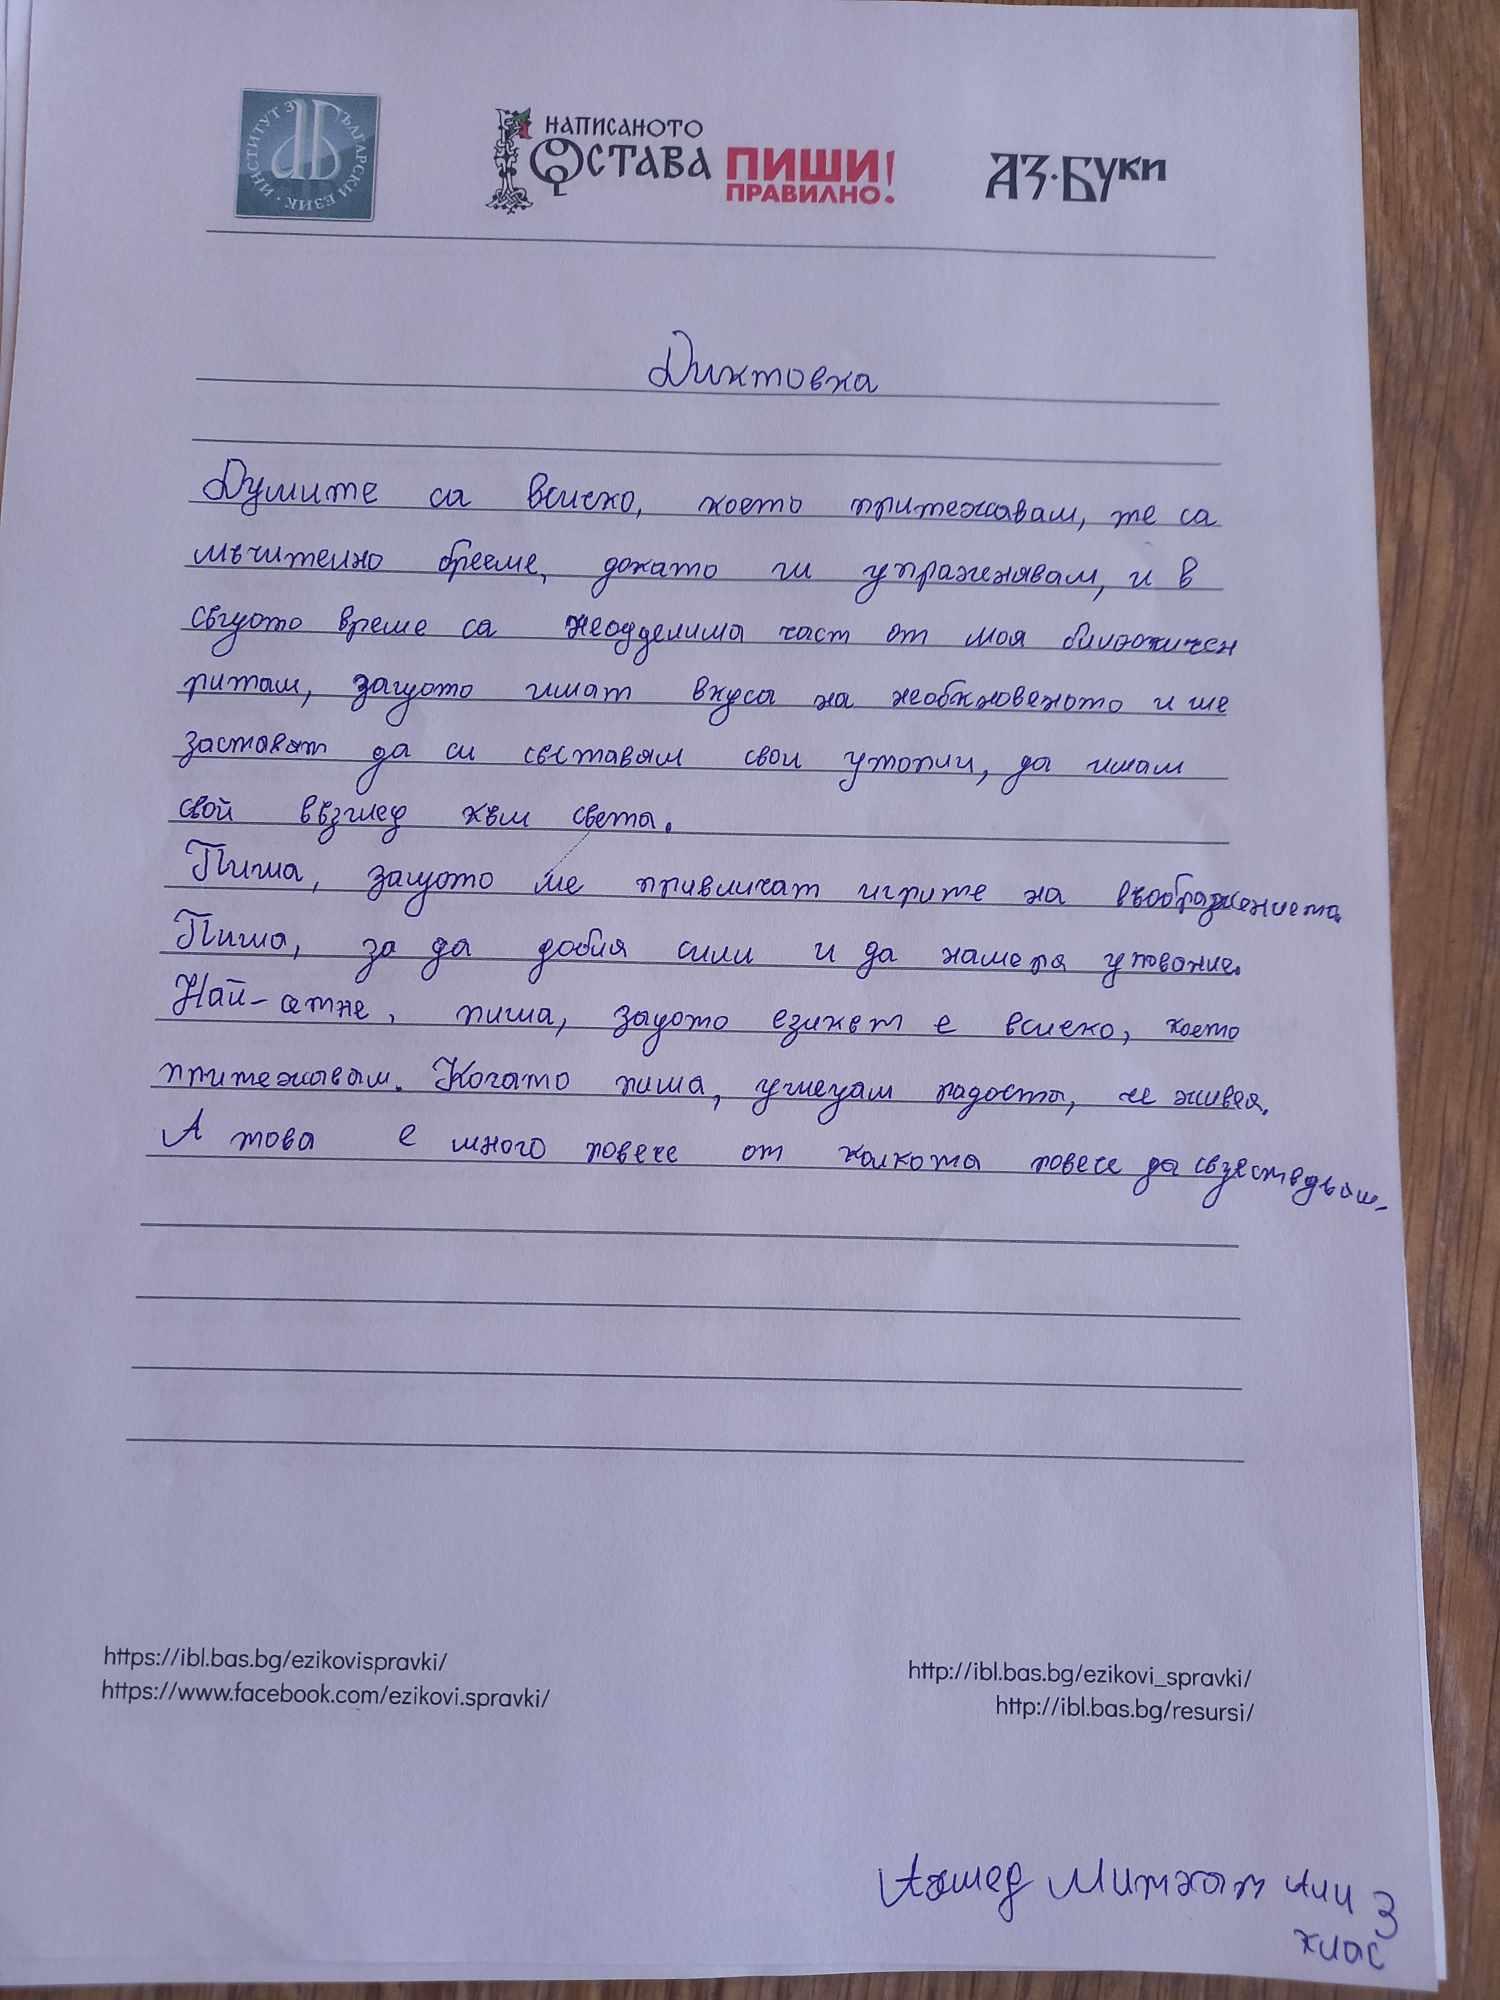 ИНСТИТУТ ЗА БЪЛГАРСКИ ЕЗИК
НАПИСАНОТО
ОСТАВА ПИШИ
ПРАВИЛНО!
АЗ·БУКИ
Диктовка
Думите са всичко, което притежавам, те са
мъчително бреме, докато ги упражнявам, и в
същото време са неодделима част от моя биологичен
ритам, защото имат вкуса на необкновеното и ме
заставят да си съставям свои утопии, да имам
свой възглед към света.
Пиша, защото ме привличат игрите на въображението.
Пиша, за да добия сили и да намеря упование.
Най-сетне, пиша, защото езикът е всичко, което
притежавам. Когато пиша, усещам радостта, че живея.
А това е много повече от колкото повече да съзествувам.
https://ibl.bas.bg/ezikovispravki/
https://www.facebook.com/ezikovi.spravki/
http://ibl.bas.bg/ezikovi_spravki/
http://ibl.bas.bg/resursi/
Ахмед Митхат Али 3
клас